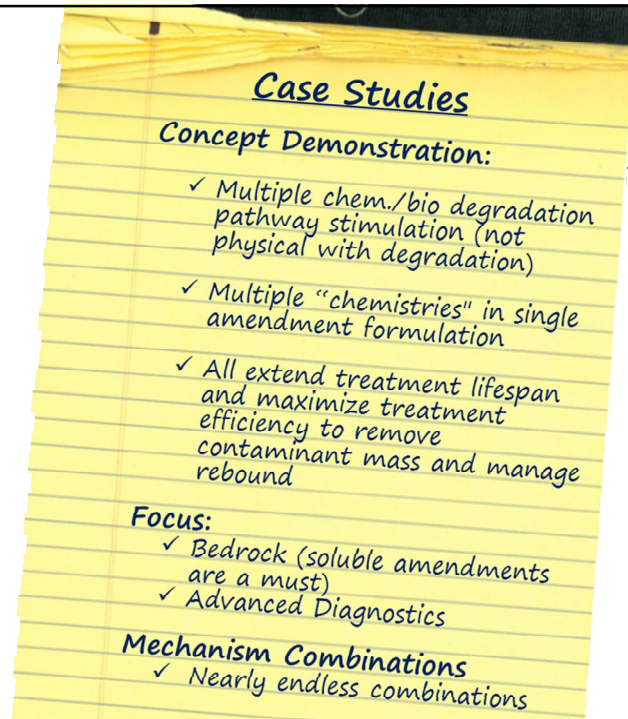 Case Studies
Concept Demonstration:
✓ Multiple chem./bio degradation
pathway stimulation (not
physical with degradation)
✓ Multiple “chemistries" in single
amendment formulation
✓ All extend treatment lifespan
and maximize treatment
efficiency to remove
contaminant mass and manage
rebound
Focus:
✓ Bedrock (soluble amendments
are a must)
✓ Advanced Diagnostics
Mechanism Combinations
✓ Nearly endless combinations